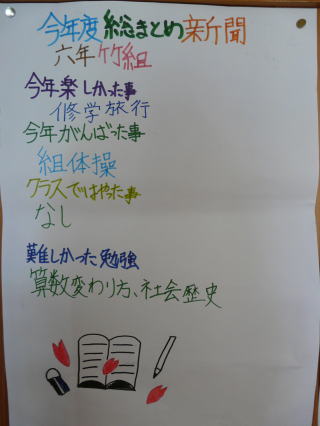 今年度総まとめ新聞
六年竹組
今年楽しかった事
修学旅行
今年がんばった事
組体操
クラスではやった事
なし
難しかった勉強
算数変わり方、社会歴史